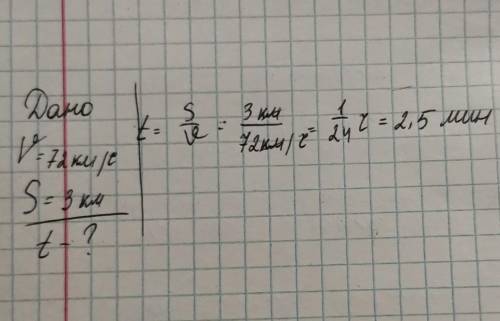 Дано
V = 72 км/ч
S = 3 км
t - ?
t = S/V = 3 км/72 км/ч = 1/24 ч = 2,5 мин